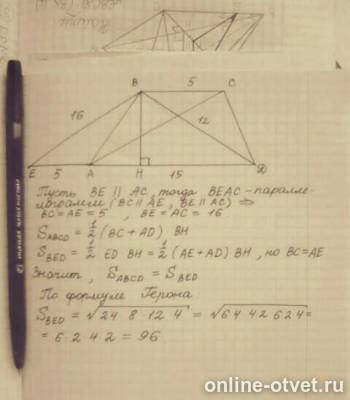 5
B C
16
12
E 5 A H 15 D
Пусть BE || AC, тогда BEAC - паралле-
лограмм (BC || AE, BE || AC) ⇒
BC = AE = 5, BE = AC = 16
S ABCD = 1/2 (BC + AD) BH
S BED = 1/2 ED BH = 1/2 (AE + AD) BH, но BC = AE
Значит, S ABCD = S BED
По формуле Герона:
S BED = √24 8 12 4 = √64 42 624 =
= 6 2 4 2 = 96
online-otvet.ru